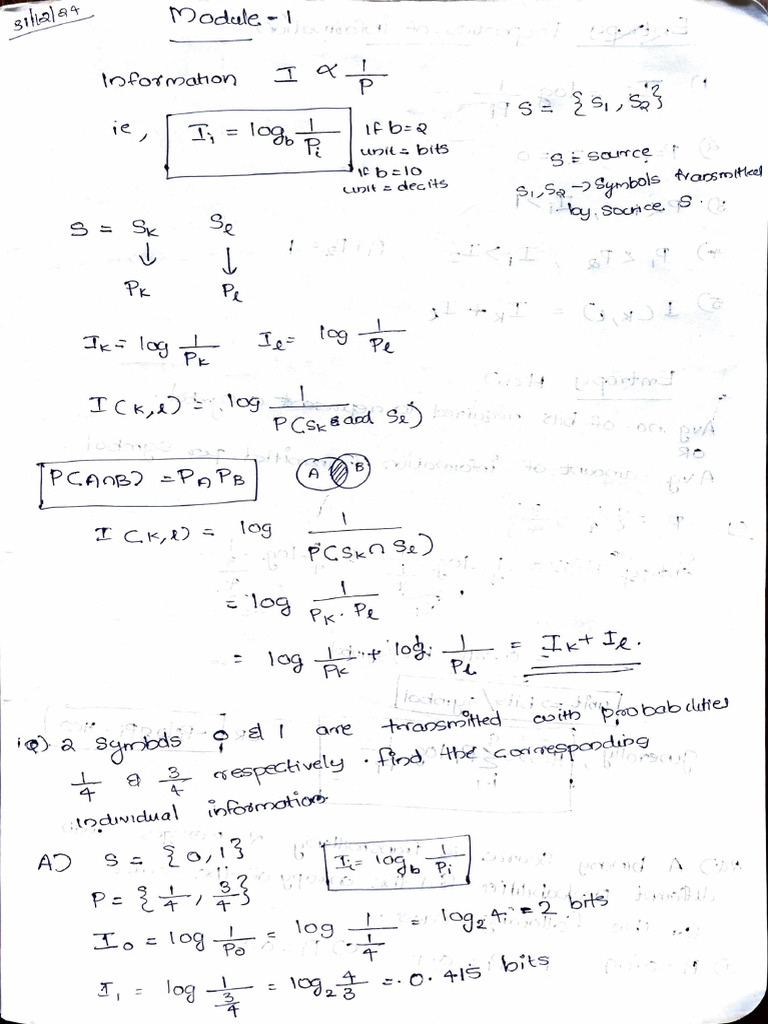 31/12/24
Module-1
Information I ∝ 1/P
S = {S1, S2}
ie, I_i = log_b 1/P_i If b=2
unit = bits
If b=10
unit = decits
S = source
S1, S2 → Symbols transmitted
by source S.
S = S_k S_l
↓ ↓
P_k P_l
I_k = log 1/P_k I_l = log 1/P_l
I(k,l) = log 1/P(S_k and S_l)
P(A∩B) = P_A P_B A B
I(k,l) = log 1/P(S_k ∩ S_l)
= log 1/P_k . P_l
= log 1/P_k + log 1/P_l = I_k + I_l.
Q) 2 symbols 0 & 1 are transmitted with probabilities
1/4 & 3/4 respectively. find the corresponding
individual information
A) S = {0,1} I_i = log_b 1/P_i
P = {1/4, 3/4}
I_0 = log 1/P_0 = log 1/(1/4) = log_2 4 = 2 bits
I_1 = log 1/(3/4) = log_2 4/3 = 0.415 bits